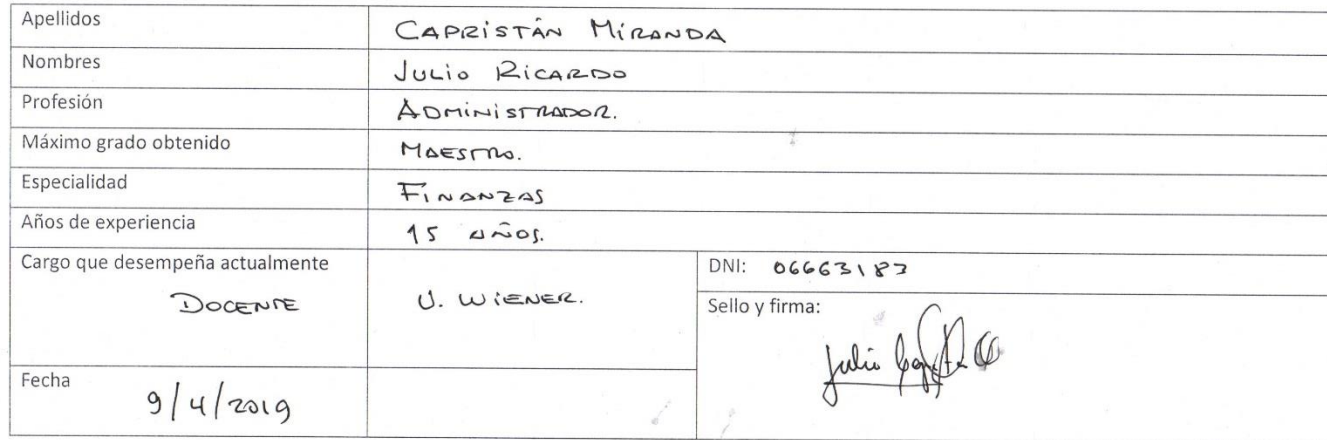 Apellidos CAPRISTÁN MIRANDA
Nombres JULIO RICARDO
Profesión ADMINISTRADOR.
Máximo grado obtenido MAESTRO.
Especialidad FINANZAS
Años de experiencia 15 AÑOS.
Cargo que desempeña actualmente
DOCENTE U. WIENER.
DNI: 06663183
Sello y firma:
Julio
Fecha
9/4/2019